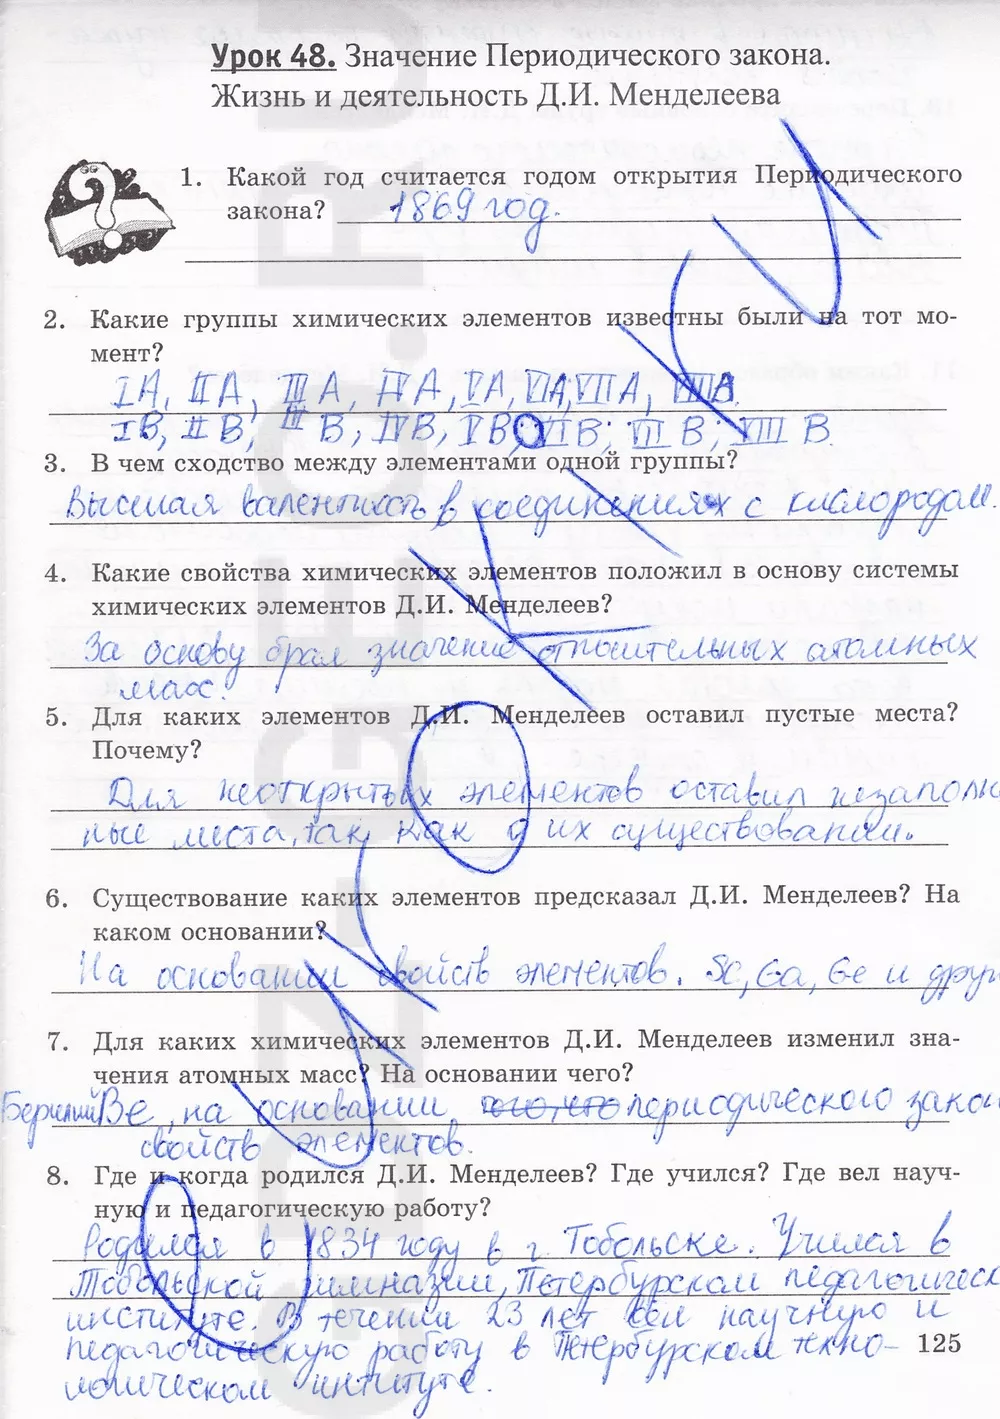 Урок 48. Значение Периодического закона.
Жизнь и деятельность Д.И. Менделеева
1. Какой год считается годом открытия Периодического
закона? 1869 год.
2. Какие группы химических элементов известны были на тот мо-
мент?
IA, IIA, IIIA, IVA, VA, VIA, VIIA, VIIIA.
IB, IIB, IIIB, IVB, VB, VIB; VIIB; VIIIB.
3. В чем сходство между элементами одной группы?
Высшая валентность в соединениях с кислородом.
4. Какие свойства химических элементов положил в основу системы
химических элементов Д.И. Менделеев?
За основу брал значение относительных атомных
масс.
5. Для каких элементов Д.И. Менделеев оставил пустые места?
Почему?
Для неоткрытых элементов оставил незаполн
ные места, так как о их существовании.
6. Существование каких элементов предсказал Д.И. Менделеев? На
каком основании?
На основании свойств элементов. Sc, Ga, Ge и друг
7. Для каких химических элементов Д.И. Менделеев изменил зна-
чения атомных масс? На основании чего?
Бериллий Be, на основании того, что периодического зако
свойств элементов.
8. Где и когда родился Д.И. Менделеев? Где учился? Где вел науч-
ную и педагогическую работу?
Родился в 1834 году в г. Тобольске. Учился в
Тобольской гимназии, Петербурском педагогическ
институте. В течении 23 лет вел научную и
педагогическую работу в Петербурском техно-
логическом институте.
125